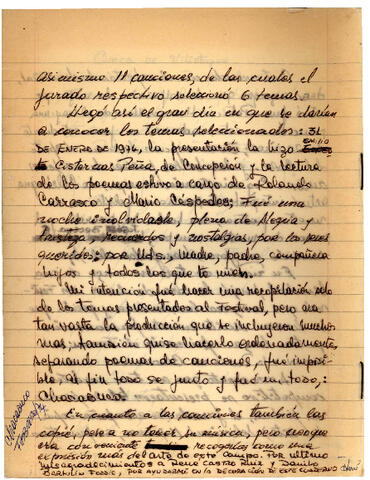 asimismo 11 canciones, de las cuales el
jurado respectivo seleccionó 6 temas.
Llegó así el gran día en que se darían
a conocer los temas seleccionados: 31
DE ENERO DE 1974, la presentación la hizo EMILIO
Cisternas Peña, de Concepción y la lectura
de los poemas estuvo a cargo de Rolando
Carrasco y Mario Céspedes; Fué una
noche inolvidable, plena de Alegría y
tristeza, recuerdos y nostalgias, por los seres
queridos: por Uds, madre, padre, compañera
hijos y todos los que te aman.
Mi intención fué hacer una recopilación solo
de los temas presentados al Festival, pero era
tan vasta la producción que se incluyeron muchos
mas, también quise hacerlo ordenadamente,
separando poemas de canciones, fué imposi-
ble, al fin todo se juntó y fué un todo,:
Chacabuco
En cuanto a las canciones también las
copié, pese a no tener su música, pero creo que
era conveniente recogerlas como una
expresión mas del arte de este campo. Por último
mis agradecimientos a Rene Castro Ruiz y Danilo
POR AYUDARME EN LA DECORACIÓN DE ESTE CUADERNO
Chacabuco